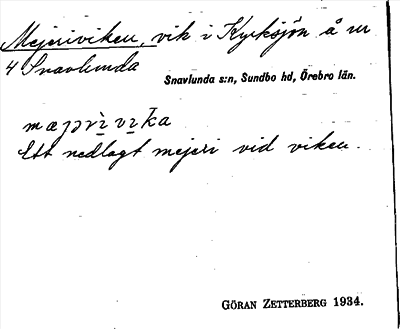 Mejeriviken, vik i Kyrksjön å nr
4 Snavlunda
Snavlunda s:n, Sundbo hd, Örebro län.
Ett nedlagt mejeri vid viken.
GÖRAN ZETTERBERG 1934.